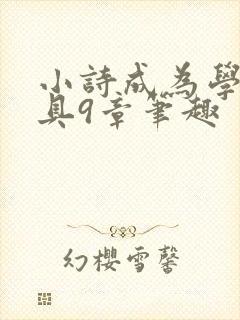 小詩成為學
具9章筆趣
幻櫻雪馨